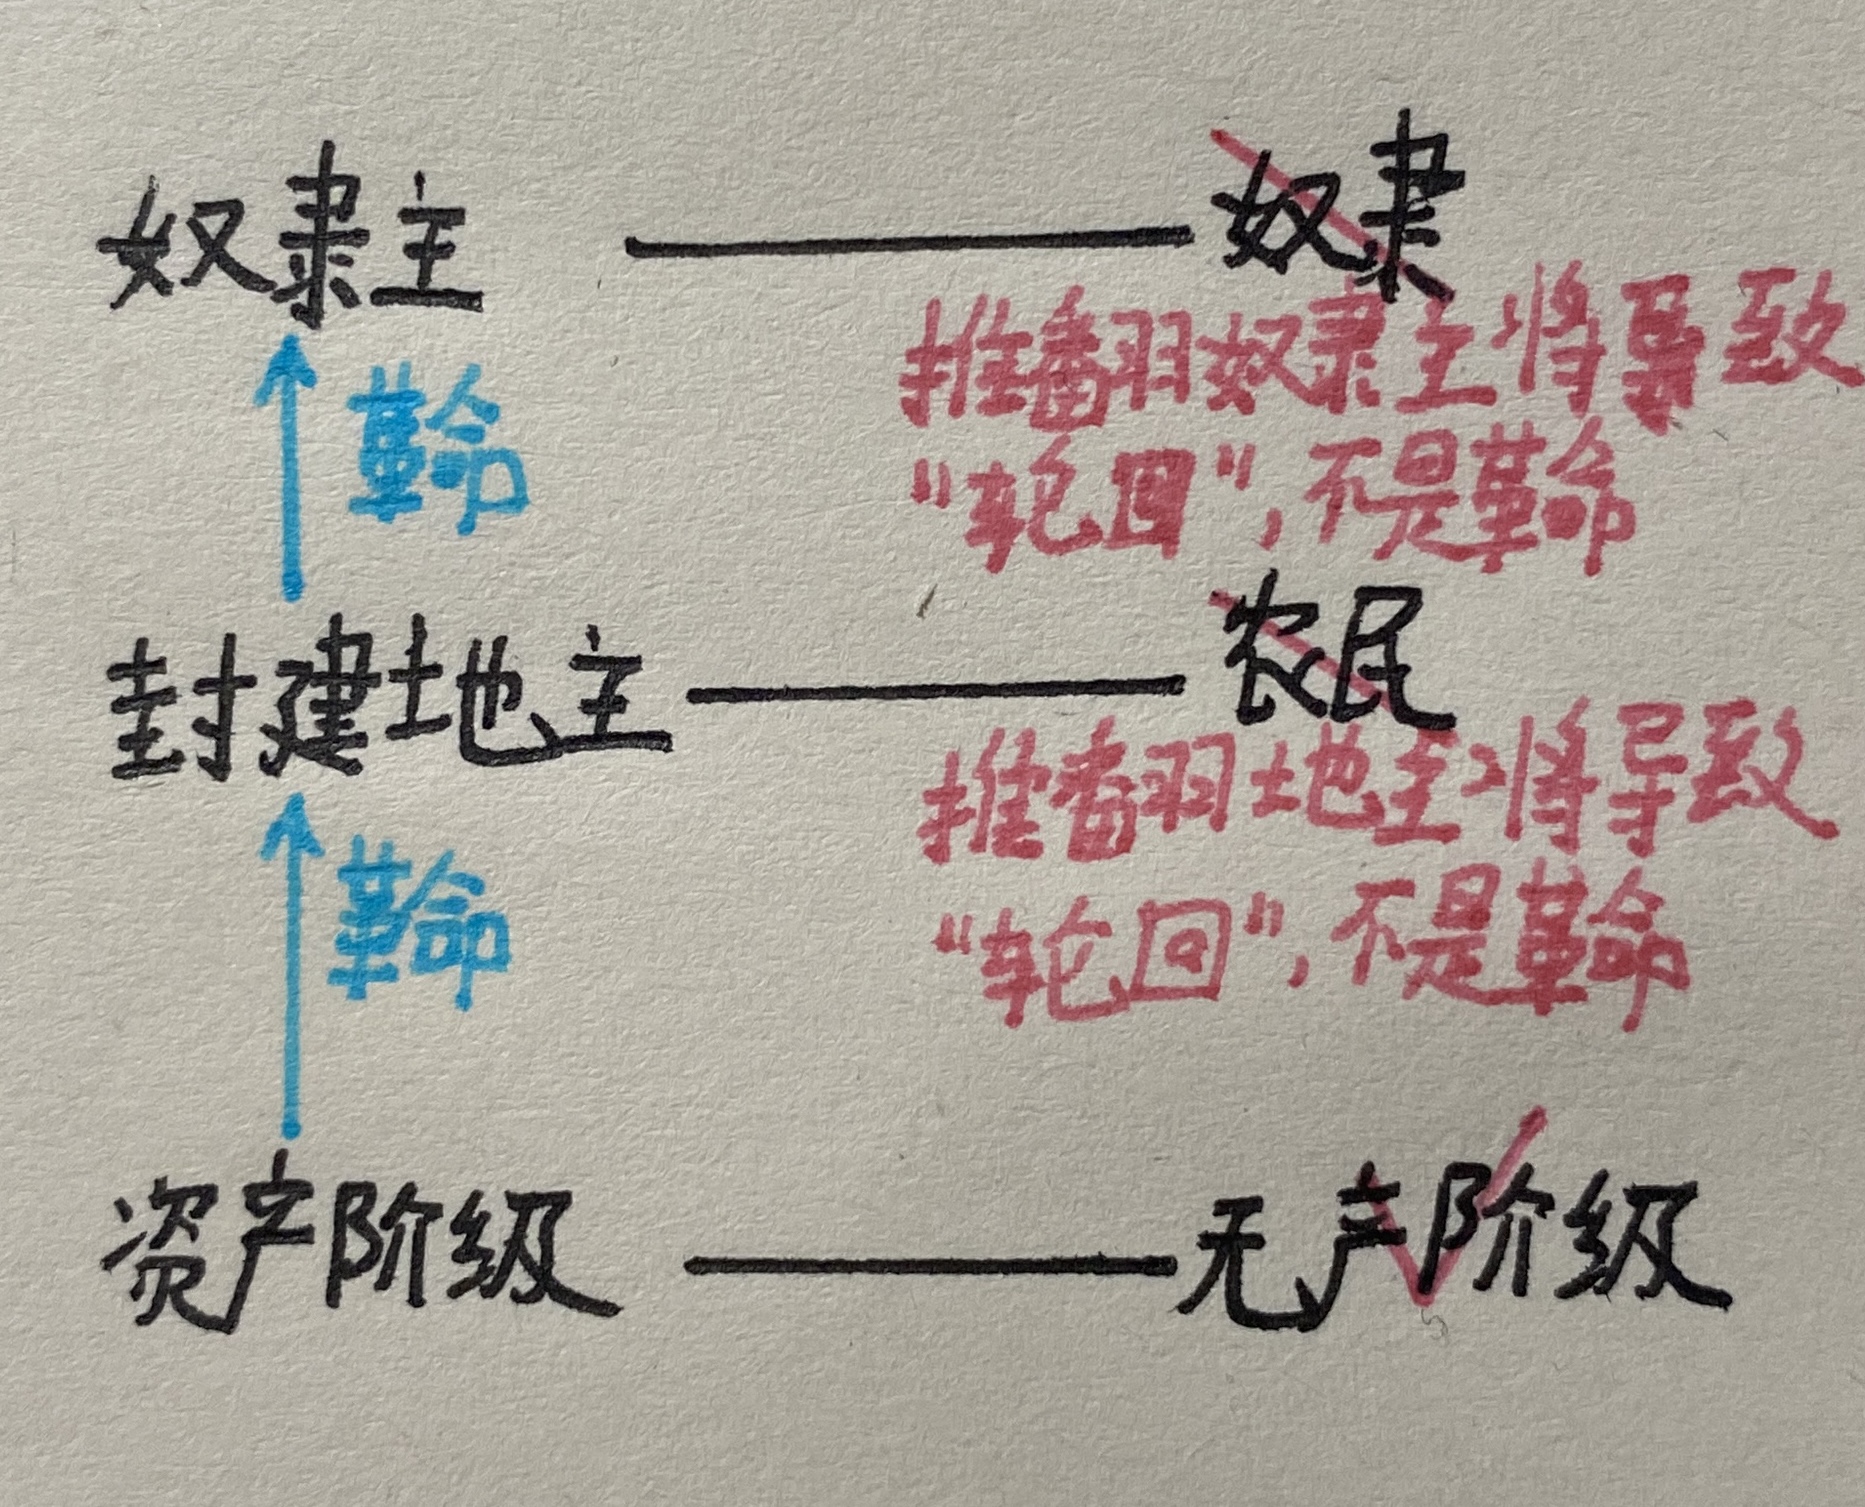 奴隶主 奴隶
推翻奴隶主将导致
革命
“轮回”，不是革命
封建地主 农民
推翻地主将导致
革命
“轮回”，不是革命
资产阶级 无产阶级